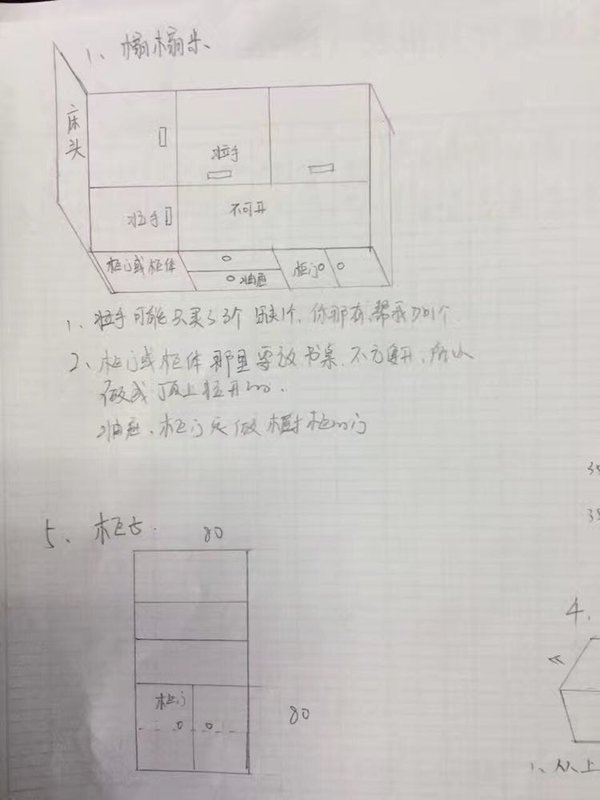 1、榻榻米、
床头
拉手
拉手
不可开
柜门或柜体
抽屉
柜门
1、拉手可能只买了3个 缺1个、你那有帮我加1个
2、柜门或柜体那里要放书桌、不方便开、所以
做成顶上拉开
抽屉、柜门
5、柜子.
80
柜门
80
35
35
4、
1、从上